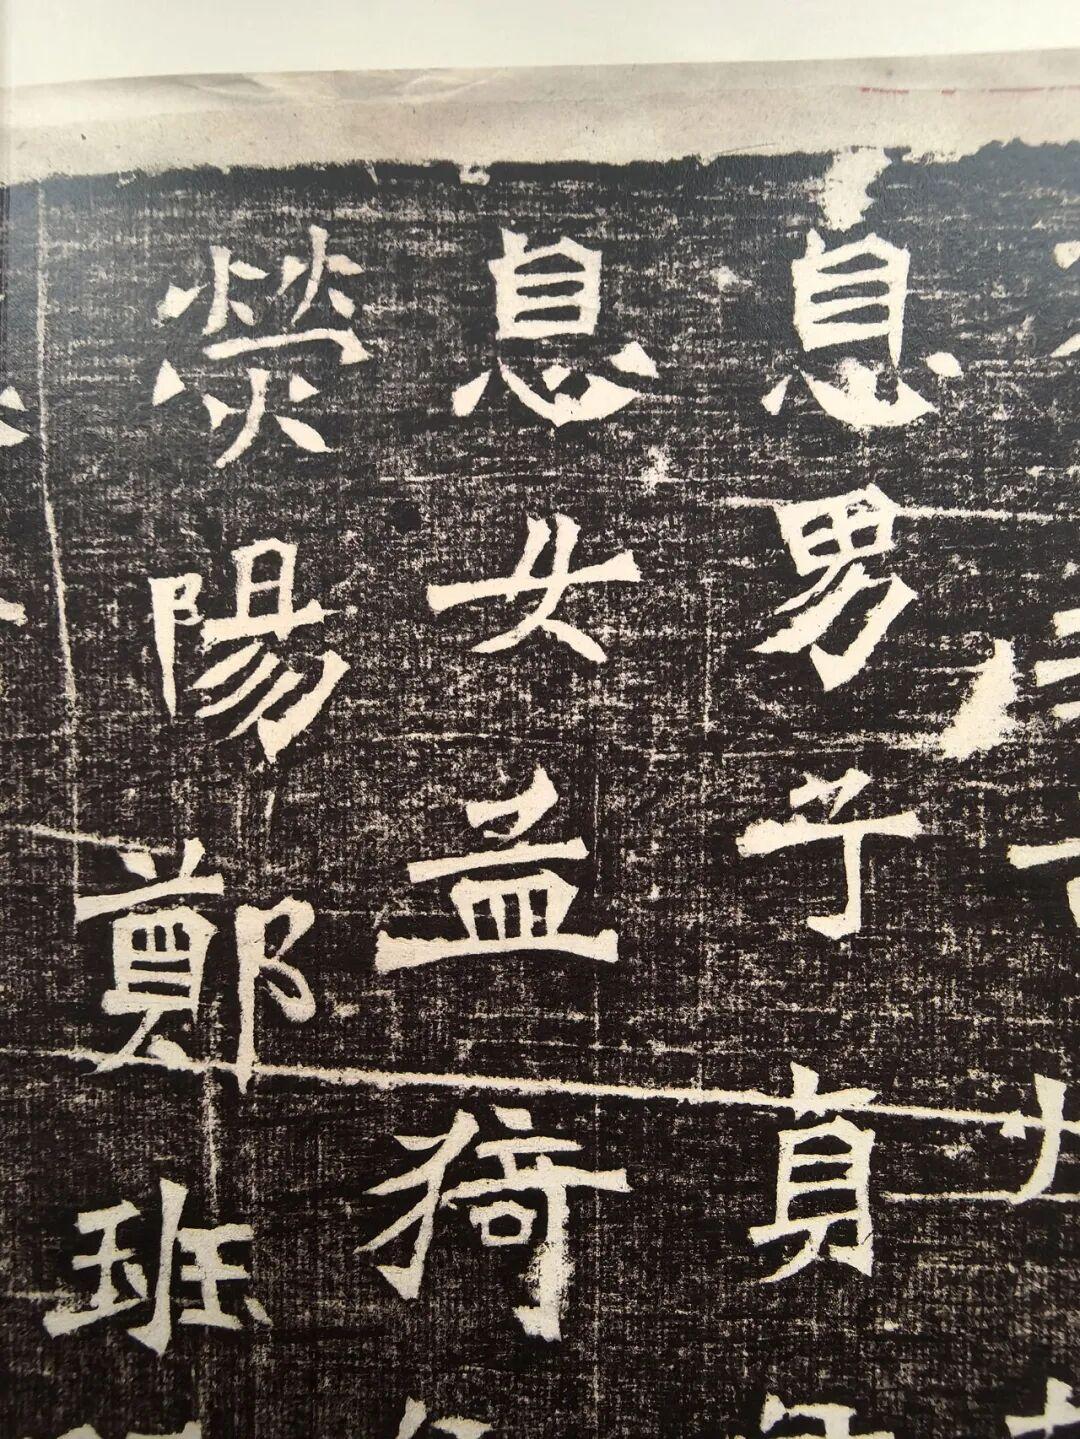 息男子貞
息女孟猗
熒陽鄭班